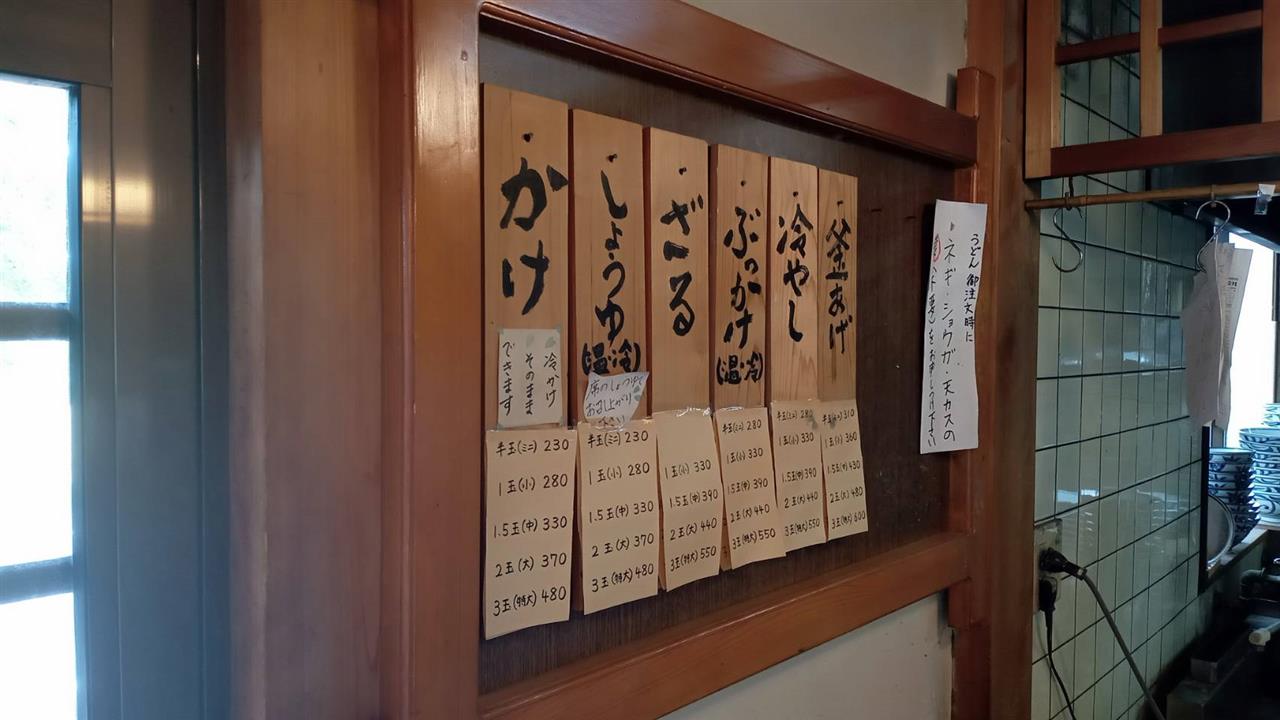 かけ
冷かけ
そのまま
できます
半玉(ミニ) 230
1玉(小) 280
1.5玉(中) 330
2玉(大) 370
3玉(特大) 480
しょうゆ
(温・冷)
席のしょうゆで
お召し上がり
下さい
半玉(ミニ) 230
1玉(小) 280
1.5玉(中) 330
2玉(大) 370
3玉(特大) 480
ざる
1玉(小) 330
1.5玉(中) 390
2玉(大) 440
3玉(特大) 550
ぶっかけ
(温・冷)
半玉(ミニ) 280
1玉(小) 330
1.5玉(中) 390
2玉(大) 440
3玉(特大) 550
冷やし
半玉(ミニ) 280
1玉(小) 330
1.5玉(中) 390
2玉(大) 440
3玉(特大) 550
釜あげ
半玉(ミニ) 310
1玉(小) 360
1.5玉(中) 430
2玉(大) 480
3玉(特大) 600
うどん御注文時に
・ネギ・ショウガ・天カスの
をお申しつけ下さい